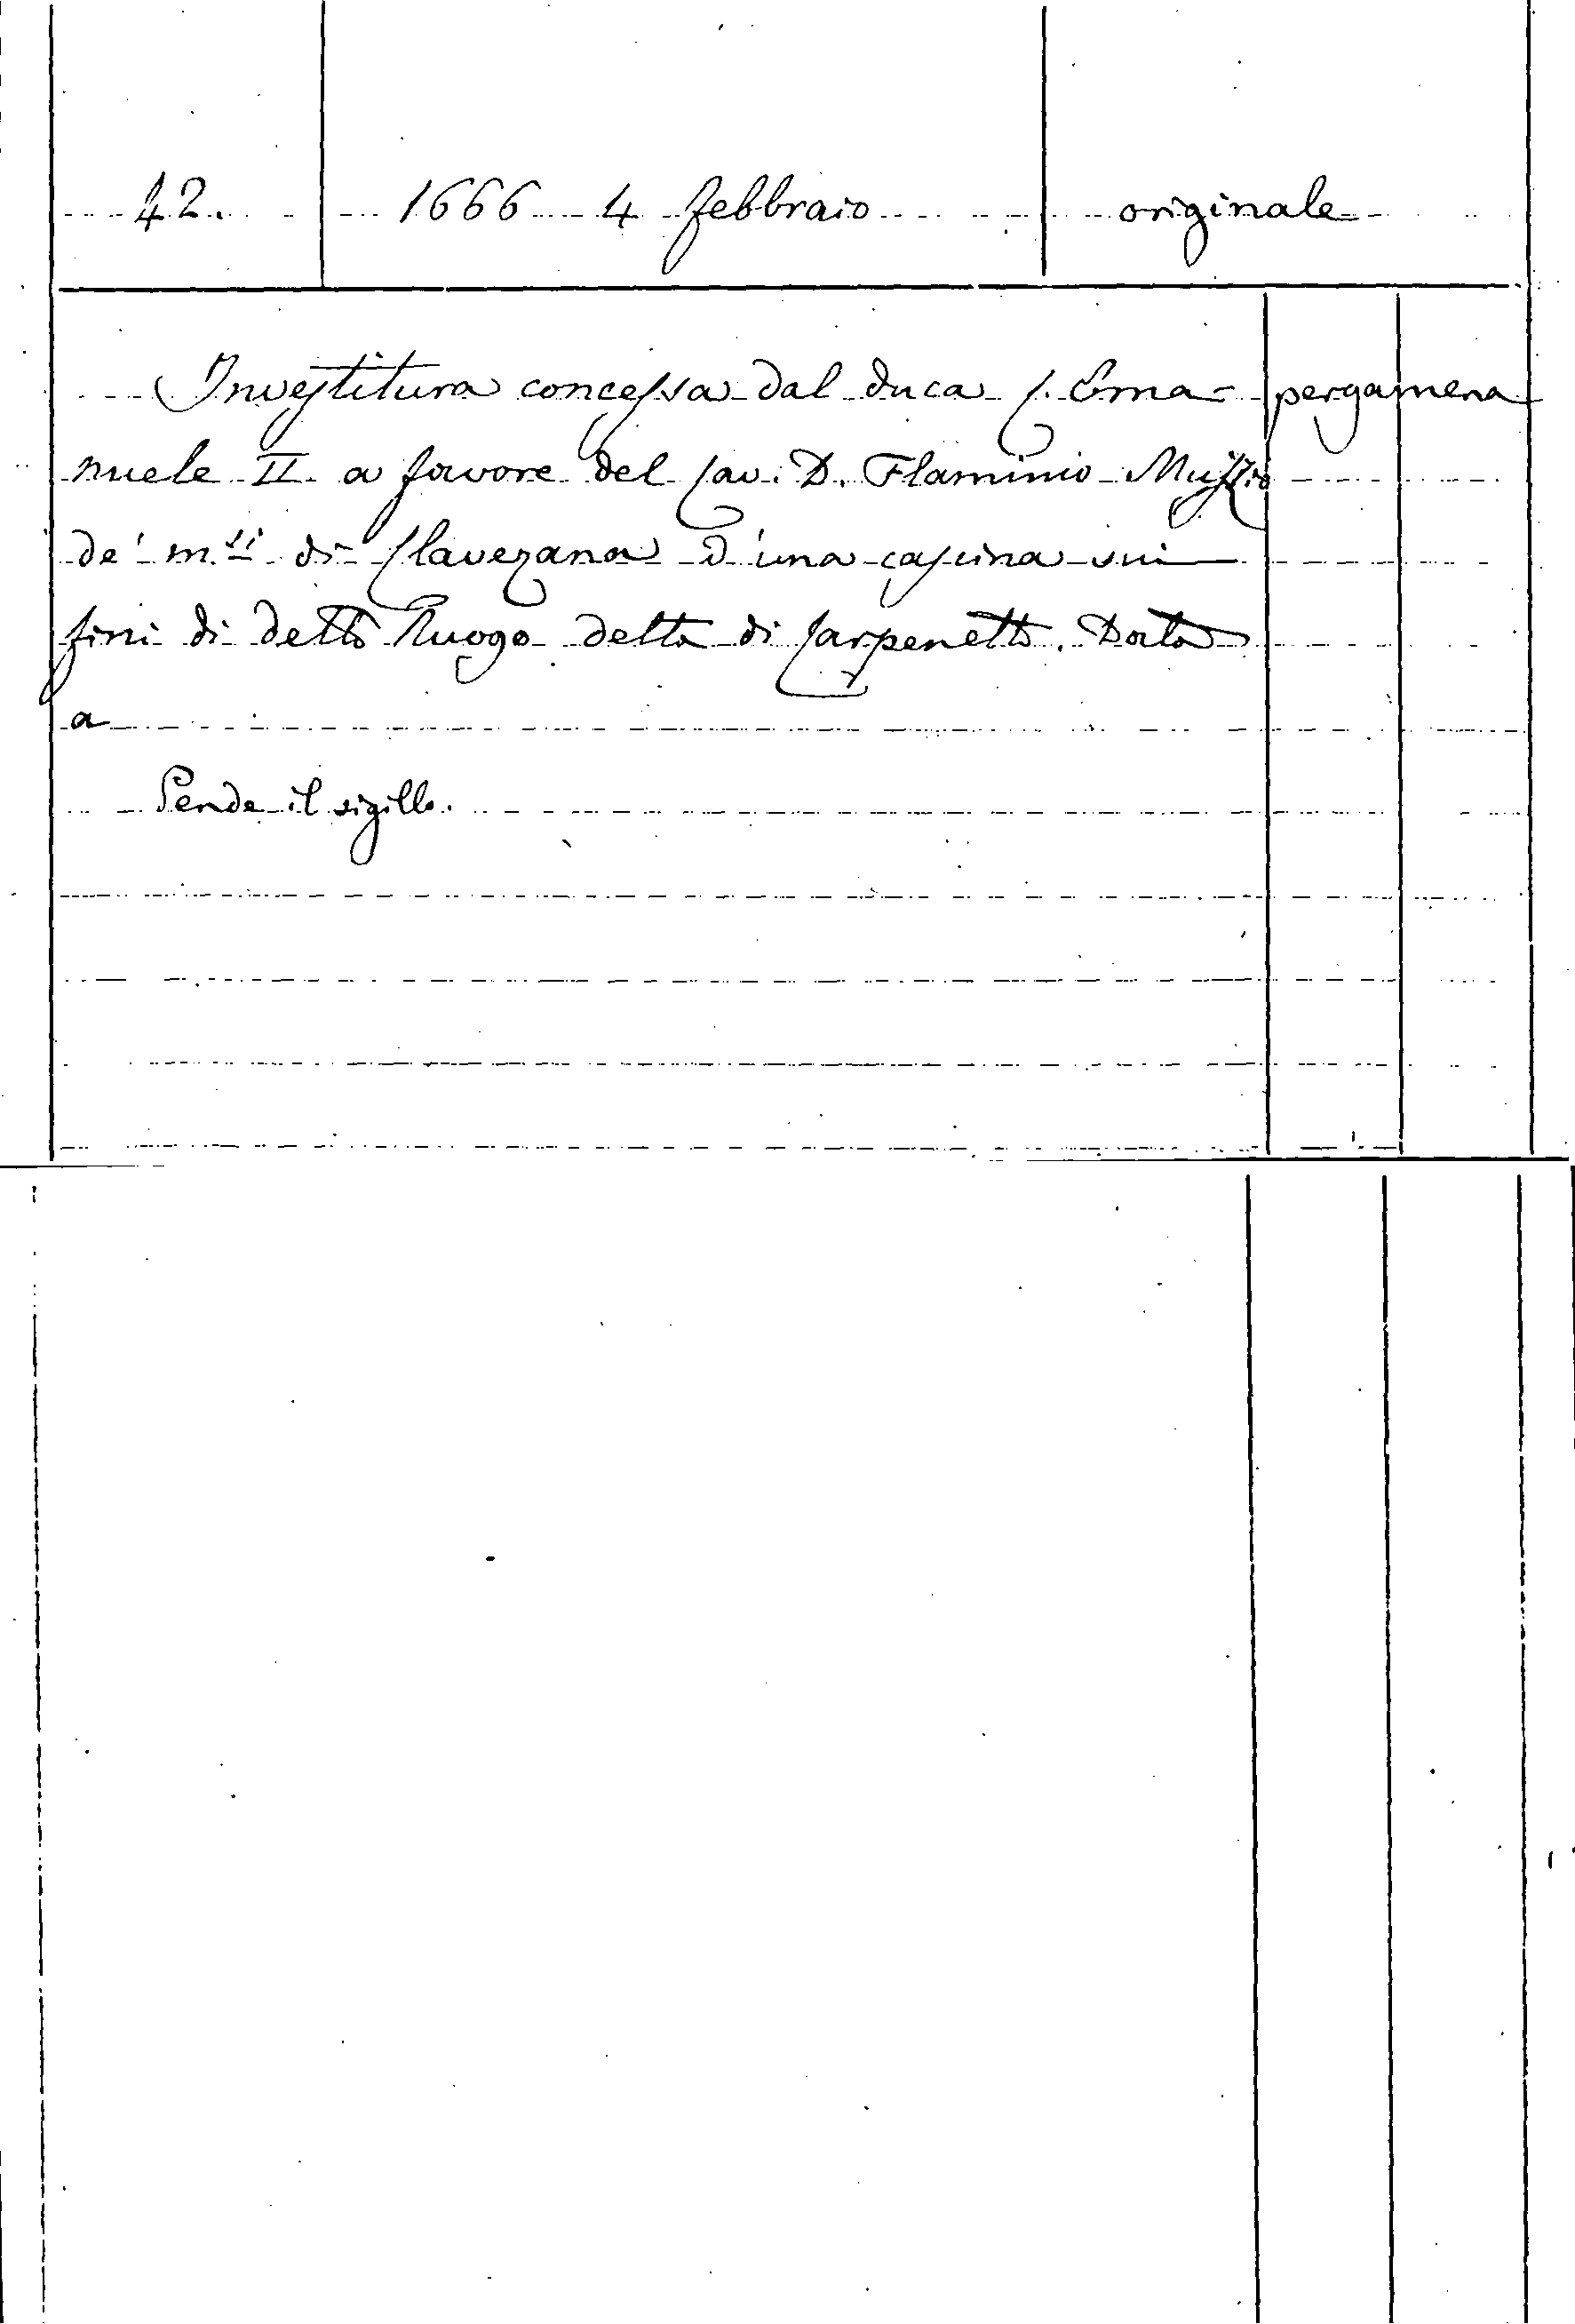 42. 1666 4 febbraio originale
Investitura concessa dal duca C. Ema- pergamena
nuele II a favore del Cav. D. Flaminio
de' m.si di Clavezana d'una cascina sui
fini di detto luogo detta di Carpenetto. Data
a
Pende il sigillo.